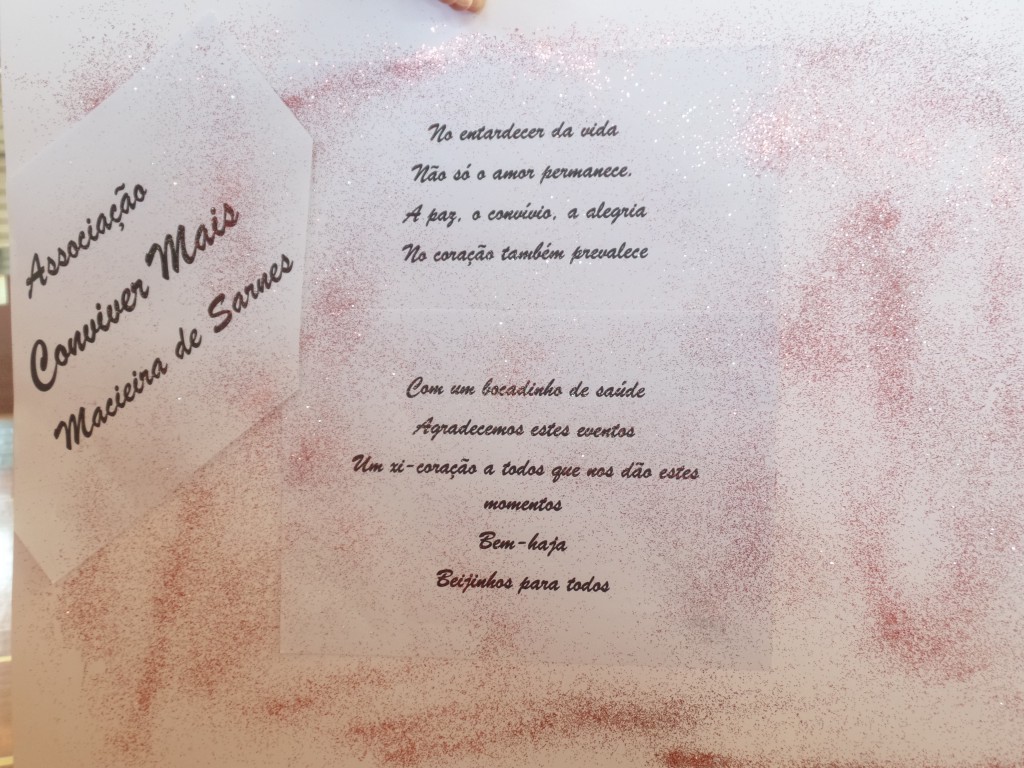 Associação
Conviver Mais
Macieira de Sarnes
No entardecer da vida
Não só o amor permanece.
A paz, o convívio, a alegria
No coração também prevalece
Com um bocadinho de saúde
Agradecemos estes eventos
Um xi-coração a todos que nos dão estes
momentos
Bem-haja
Beijinhos para todos